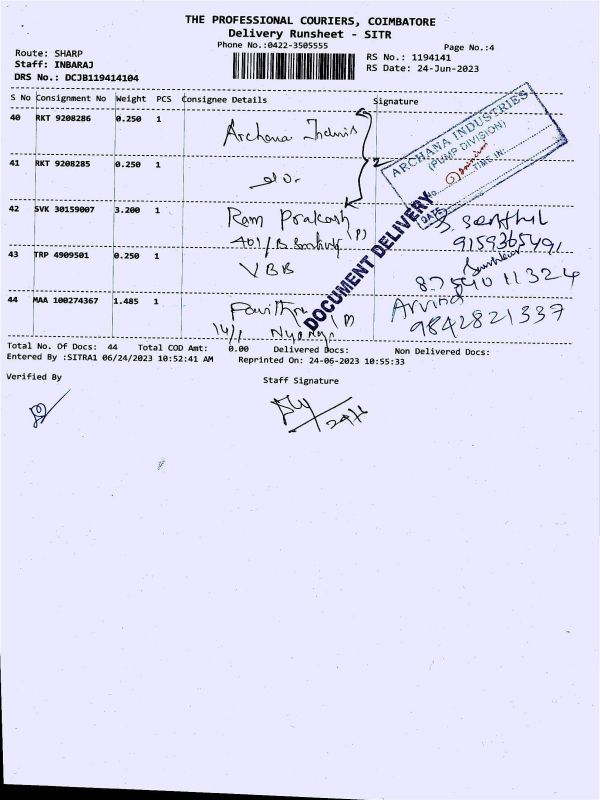 THE PROFESSIONAL COURIERS, COIMBATORE
Delivery Runsheet - SITR
Phone No.:0422-3505555
Page No.:4
Route: SHARP
Staff: INBARAJ
DRS No.: DCJB119414104
RS No.: 1194141
RS Date: 24-Jun-2023
S No Consignment No Weight PCS Consignee Details Signature
40 RKT 9208286 0.250 1 Archana
ARCHANA INDUSTRIES
(PUMP DIVISION)
TIME IN:
DATE
41 RKT 9208285 0.250 1
2
42 SVK 30159007 3.200 1 Ram Prakash (P)
401/B
S. Senthil
9159365491
DOCUMENT DELIVERY
43 TRP 4909501 0.250 1 VBB
8754011324
44 MAA 100274367 1.485 1 Pavithra
14/1
Arvind
9842821337
Total No. Of Docs: 44 Total COD Amt: 0.00 Delivered Docs: Non Delivered Docs:
Entered By :SITRA1 06/24/2023 10:52:41 AM Reprinted On: 24-06-2023 10:55:33
Verified By
Staff Signature
24/6